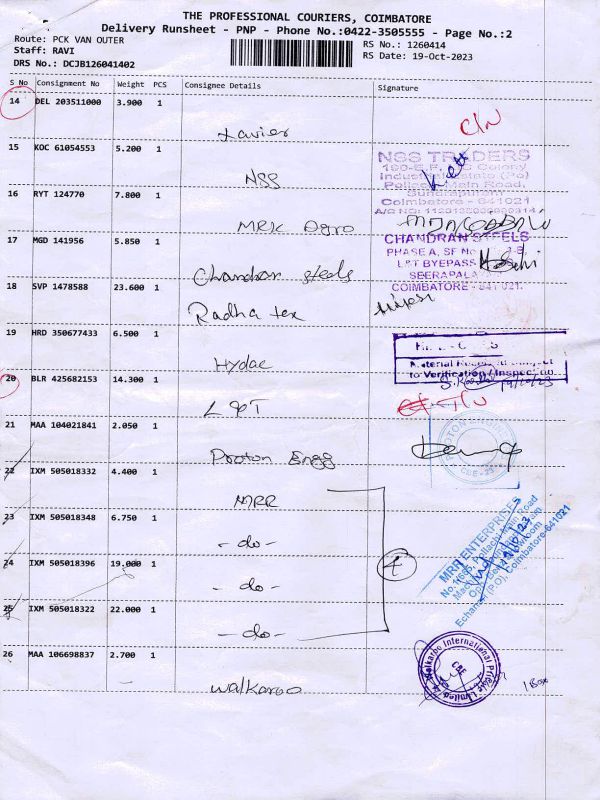 THE PROFESSIONAL COURIERS, COIMBATORE
Delivery Runsheet - PNP - Phone No.:0422-3505555 - Page No.:2
Route: PCK VAN OUTER
RS No.: 1260414
Staff: RAVI
RS Date: 19-Oct-2023
DRS No.: DCJB126041402
S No Consignment No Weight PCS Consignee Details Signature
14 DEL 203511000 3.900 1
Xavier
15 KOC 61054553 5.200 1
NSS
NSS TRADERS
Industrial Estate (Po)
Main Road,
Coimbatore - 641021
16 RYT 124770 7.800 1
MRK Agro
17 MGD 141956 5.850 1
Chandran Steels
CHANDRAN STEELS
PHASE A, SF No
L&T BYEPASS
SEERAPALA
COIMBATORE - 641 021.
18 SVP 1478588 23.600 1
Radha tex
19 HRD 350677433 6.500 1
Hydac
Material
to Verification / Inspection
19/10/23
20 BLR 425682153 14.300 1
L&T
21 MAA 104021841 2.050 1
Proton Engg
22 IXM 505018332 4.400 1
MRR
23 IXM 505018348 6.750 1
- do -
24 IXM 505018396 19.000 1
- do -
25 IXM 505018322 22.000 1
- do -
4
MRR ENTERPRISES
Echanari (P.O), Coimbatore-641021
26 MAA 106698837 2.700 1
Walkaroo
Walkaroo International Private Limited
CBE
1 Box